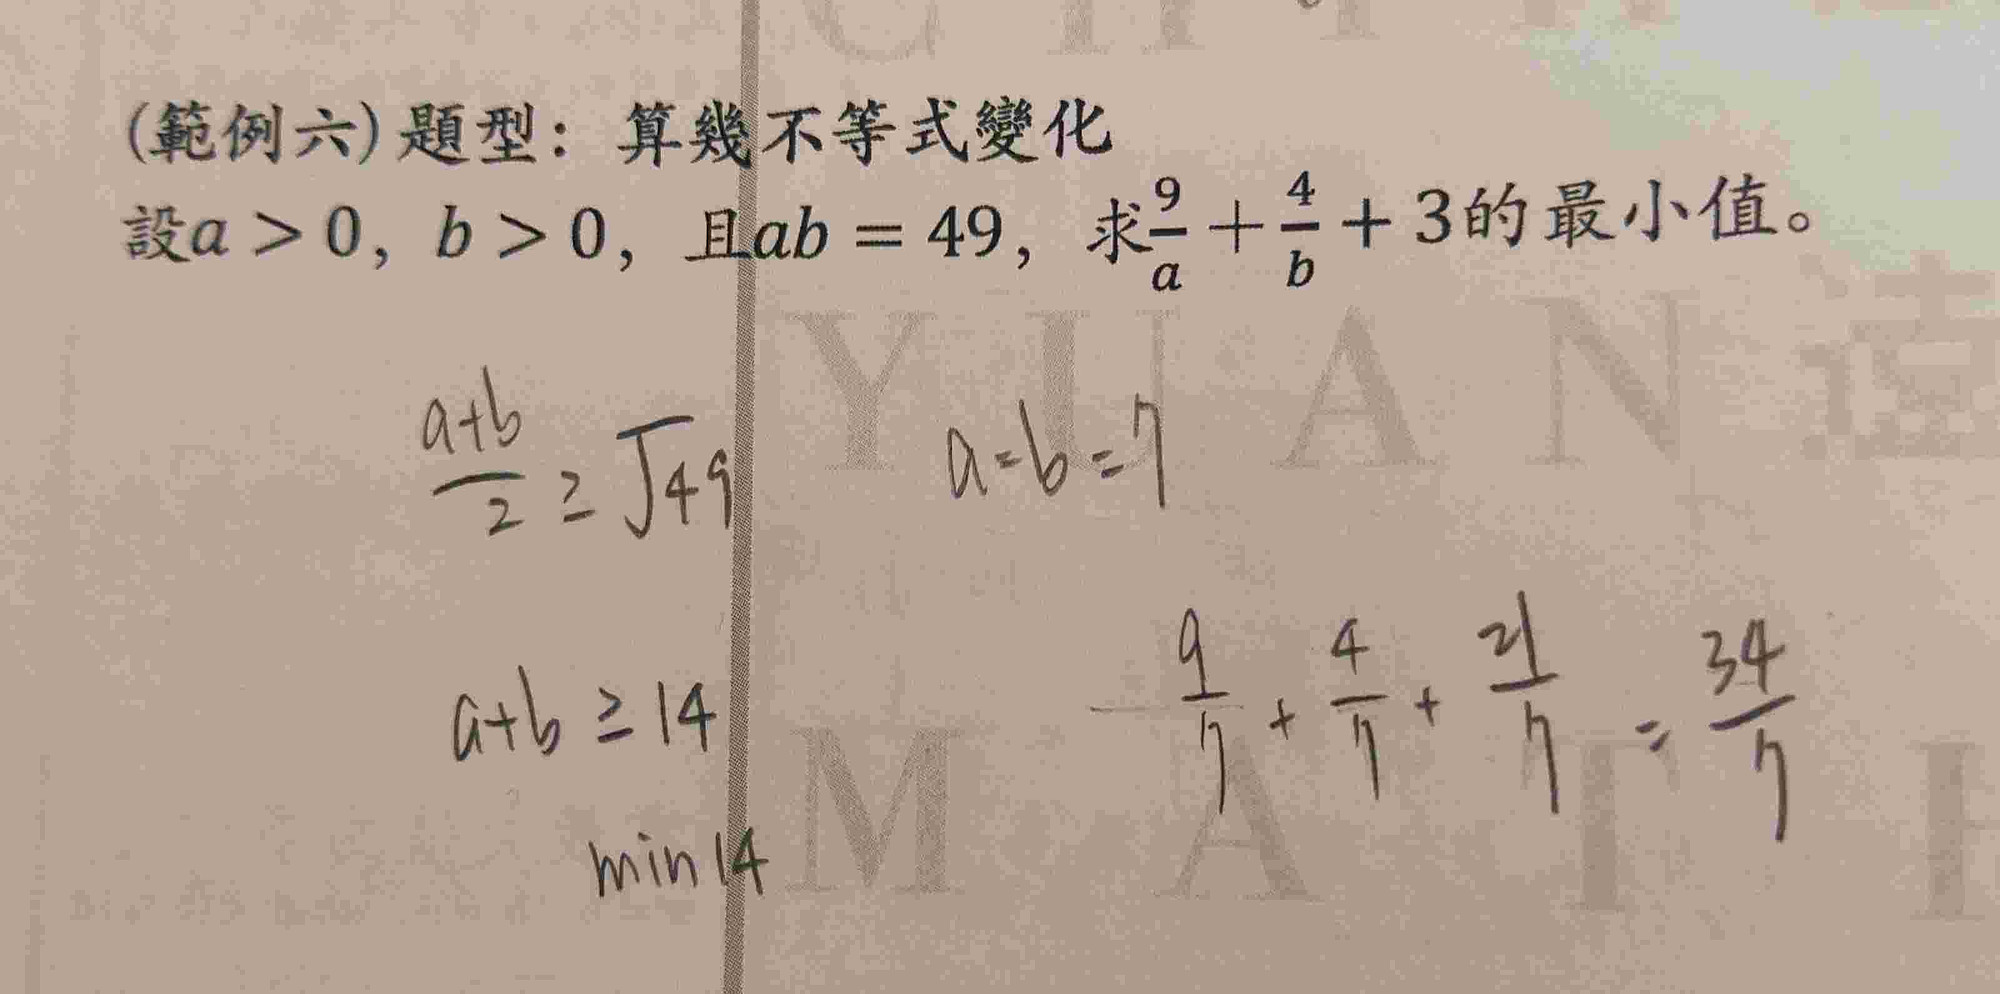 (範例六)題型：算幾不等式變化
設a > 0，b > 0，且ab = 49，求9/a + 4/b + 3的最小值。
(a+b)/2 ≥ √49
a=b=7
a+b ≥ 14
9/7 + 4/7 + 21/7 = 34/7
min 14
YUAN
MAT